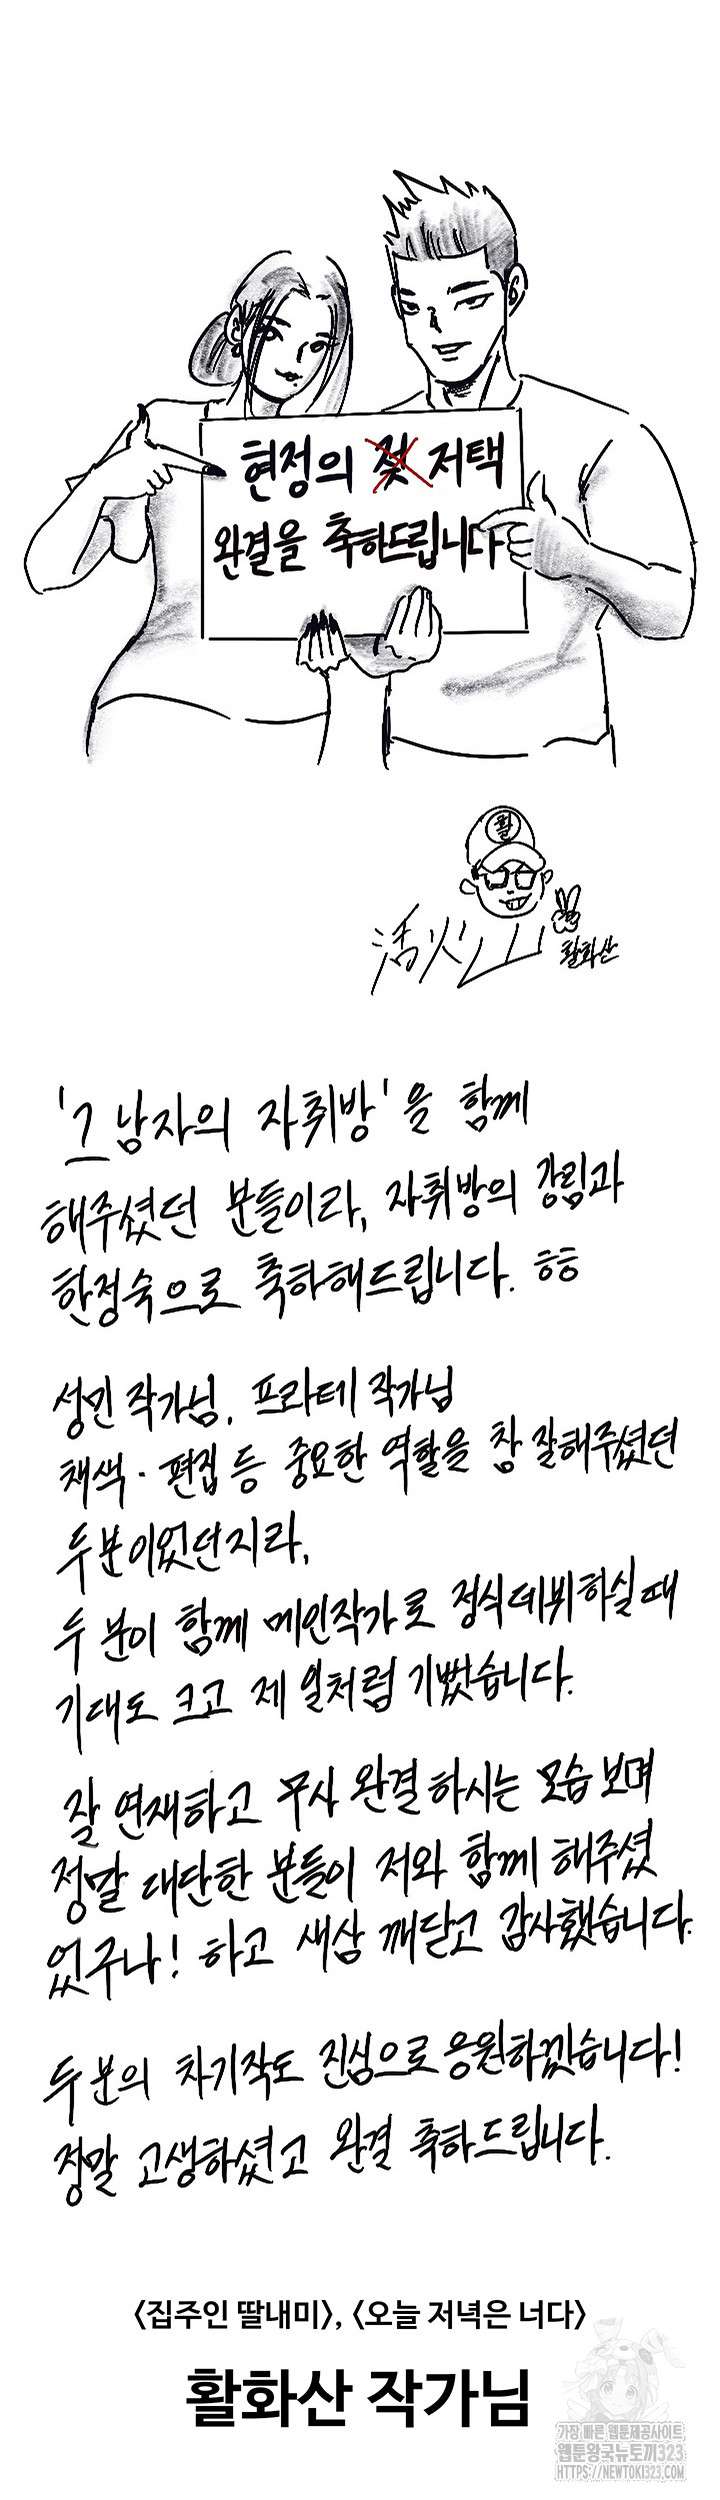 현정의 젖 저택
완결을 축하드립니다
활
活火山
활화산
'그 남자의 자취방'을 함께
해주셨던 분들이라, 자취방의 강림과
한정숙으로 축하해드립니다. ㅎㅎ
성민 작가님, 프라테 작가님
채색·편집 등 중요한 역할을 참 잘해주셨던
두 분이었던지라,
두 분이 함께 메인작가로 정식데뷔하실 때
기대도 크고 제 일처럼 기뻤습니다.
잘 연재하고 무사 완결하시는 모습 보며
정말 대단한 분들이 저와 함께 해주셨
었구나! 하고 새삼 깨닫고 감사했습니다.
두 분의 차기작도 진심으로 응원하겠습니다!
정말 고생하셨고 완결 축하드립니다.
<집주인 딸내미>, <오늘 저녁은 너다>
활화산 작가님
가장 빠른 웹툰제공사이트
웹툰왕국뉴토끼323
HTTPS://NEWTOKI323.COM